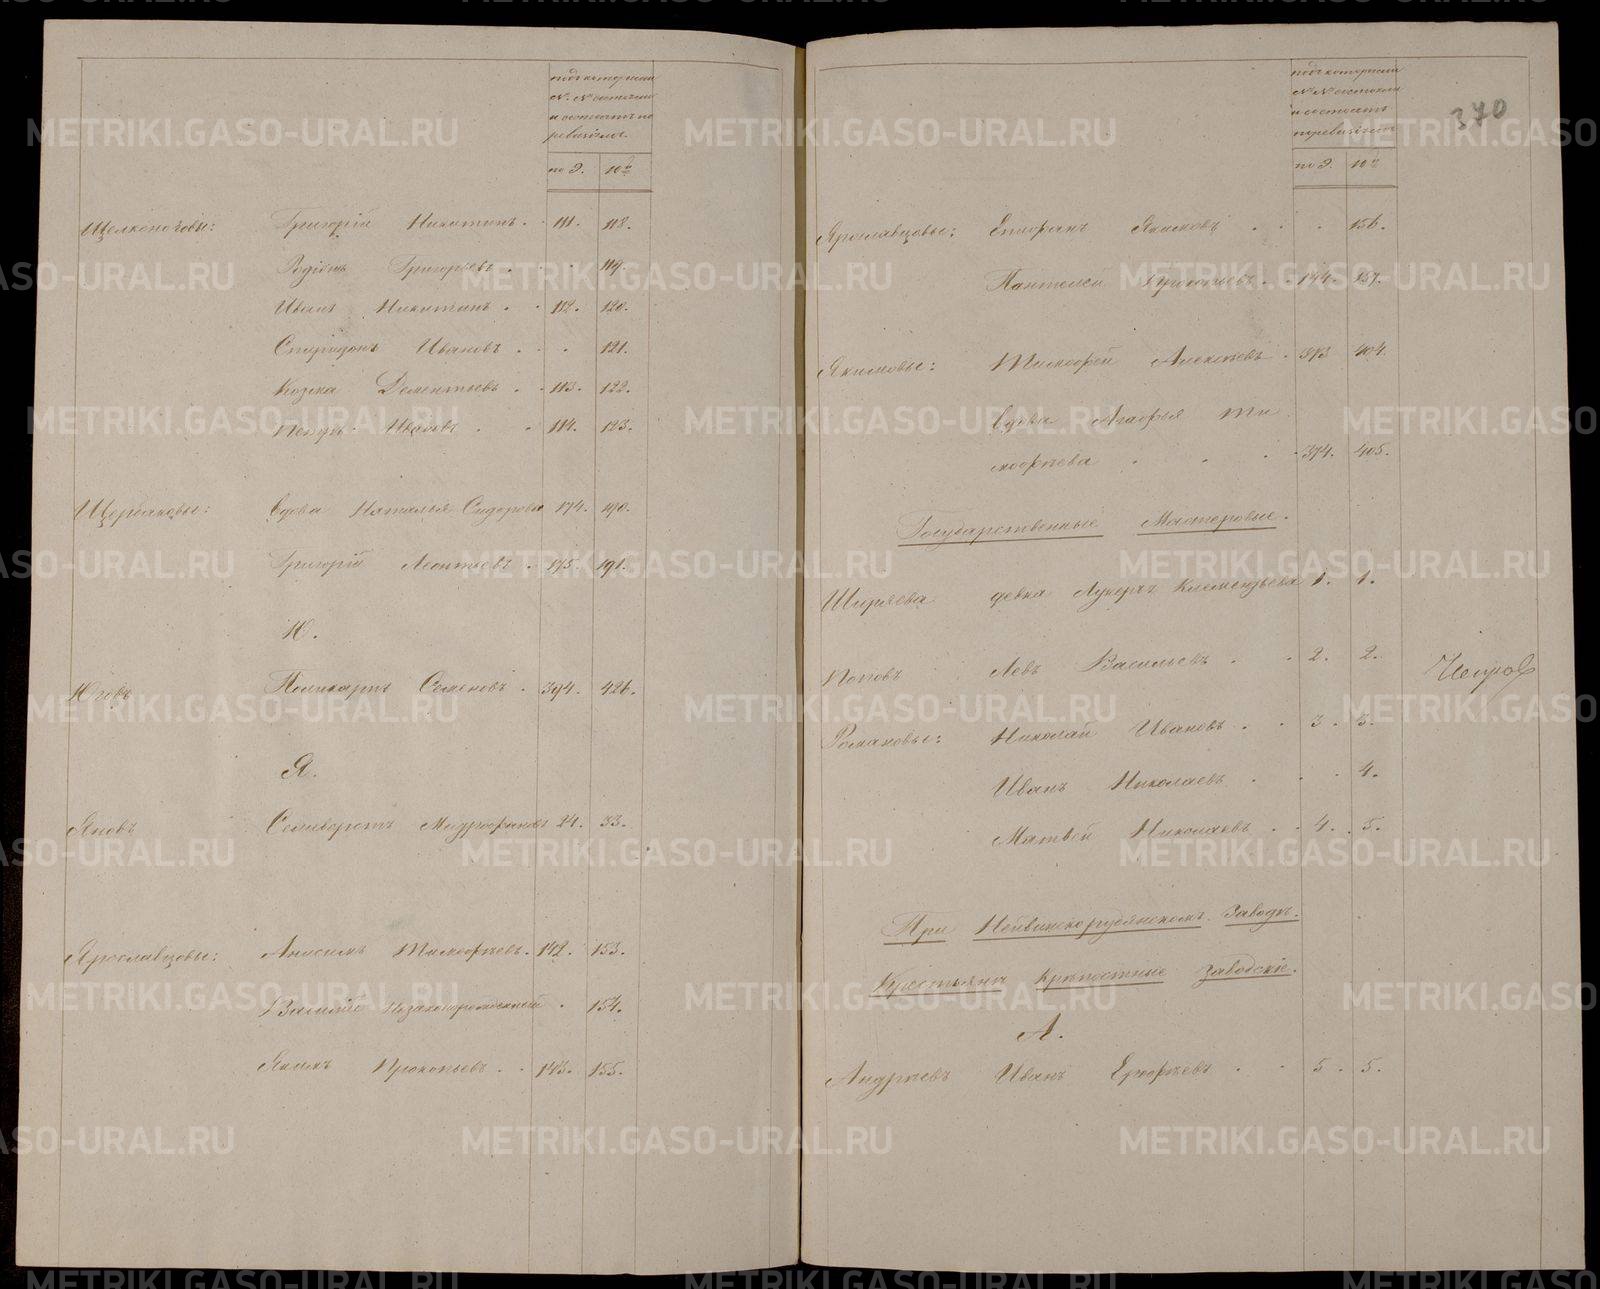 подъ которыми
№ № состояли
и состоятъ по
ревизіямъ.
по 9. 10й
Щелконоговы: Григорій Никитинъ. 111. 118.
Родіонъ Григорьевъ. 119.
Иванъ Никитинъ. 112. 120.
Спиридонъ Ивановъ. 121.
Козма Дементьевъ. 113. 122.
Петръ Ивановъ. 114. 123.
Щербаковы: вдова Наталья Сидорова 174. 190.
Григорій Леонтьевъ. 175. 191.
Ю.
Юговъ Поликарпъ Семеновъ. 394. 426.
Я.
Яновъ Селиверстъ Митрофановъ 24. 33.
Ярославцовы: Анисимъ Тимофѣевъ. 142. 153.
Василій незаконорожденный. 154.
Якимъ Прокопьевъ. 143. 155.
370
подъ которыми
№ № состояли
и состоятъ
по ревизіямъ
по 9. 10й
Ярославцовы: Епифанъ Якимовъ. 156.
Пантелей Прокопьевъ. 144. 157.
Якимовы: Тимофей Алексѣевъ. 373 404.
вдова Агафья Ти
мофѣева. 374. 405.
Государственные Мастеровые.
Ширяева девка Лукерья Клементьева 1. 1.
Поповъ Левъ Васильевъ. 2. 2.
Романовы: Николай Ивановъ. 3. 3.
Иванъ Николаевъ. 4.
Матвей Николаевъ. 4. 5.
При Нейвинскорудянскомъ Заводѣ.
Крестьяна крѣпостные заводскіе.
А.
Андреевъ Иванъ Ерофѣевъ. 5. 5.
METRIKI.GASO-URAL.RU